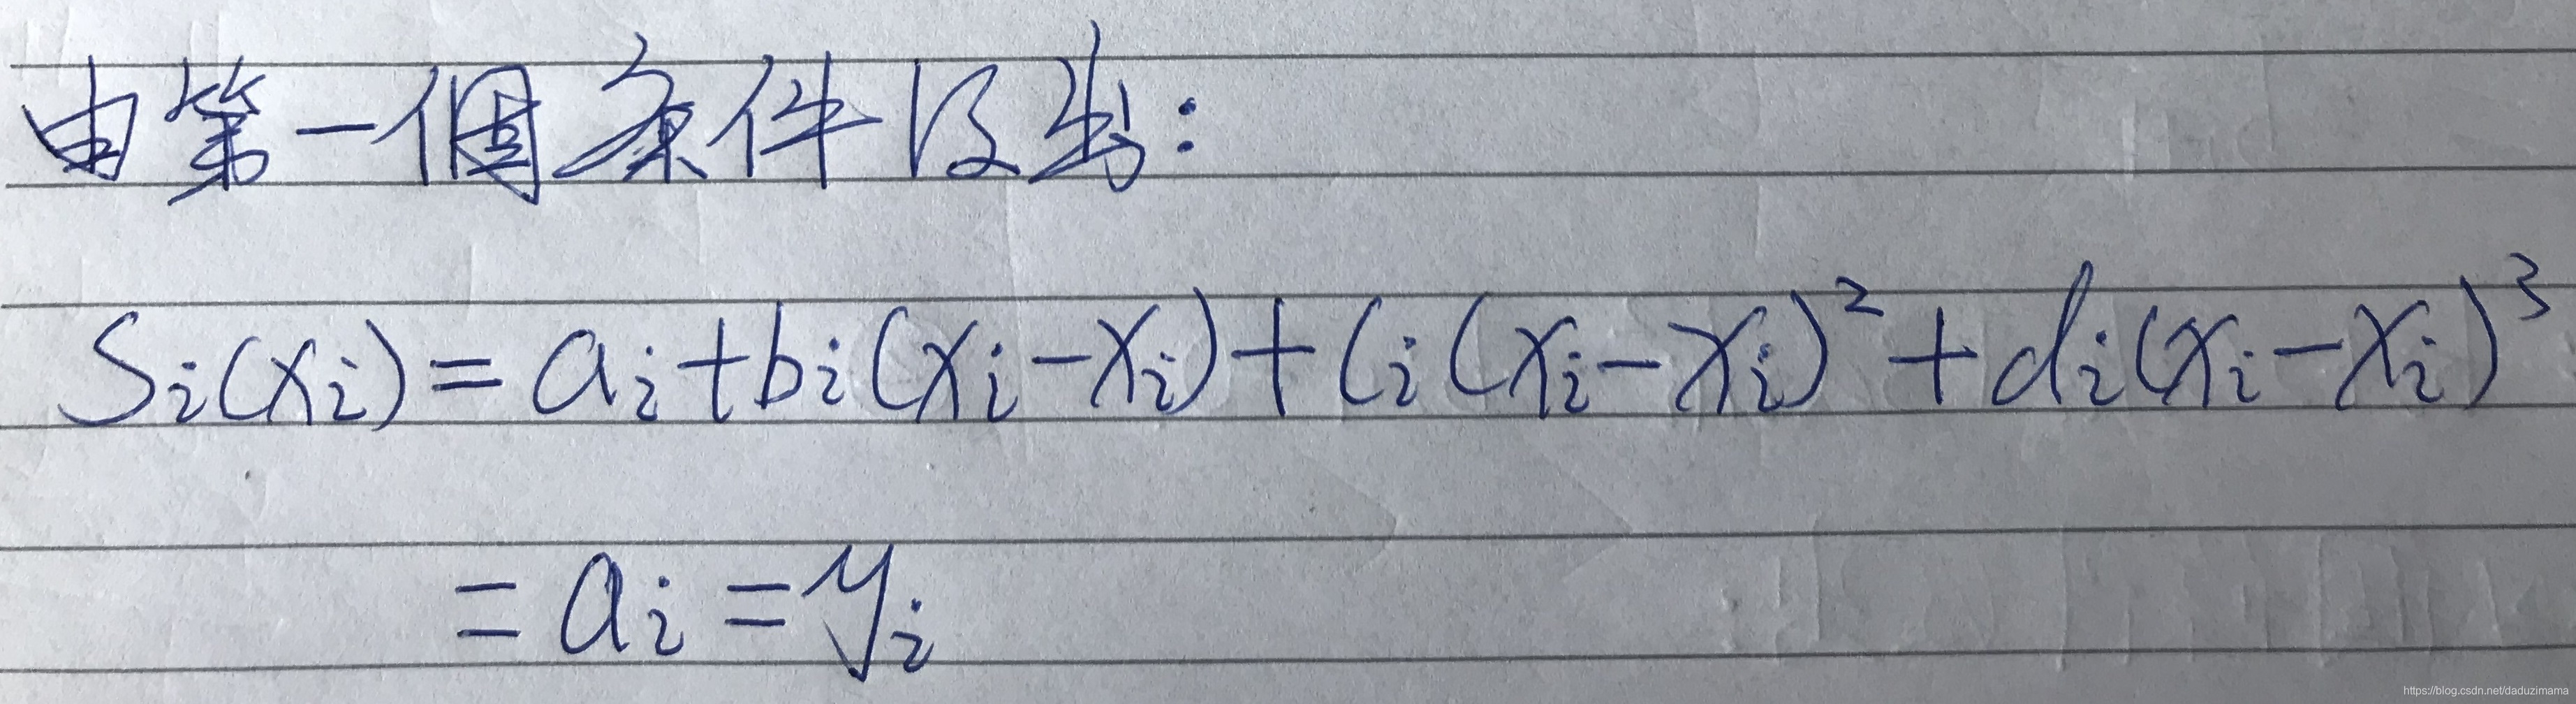 由第一個条件得出:
S_i(x_i) = a_i + b_i(x_i - x_i) + c_i(x_i - x_i)^2 + d_i(x_i - x_i)^3
= a_i = y_i
https://blog.csdn.net/daduzimama